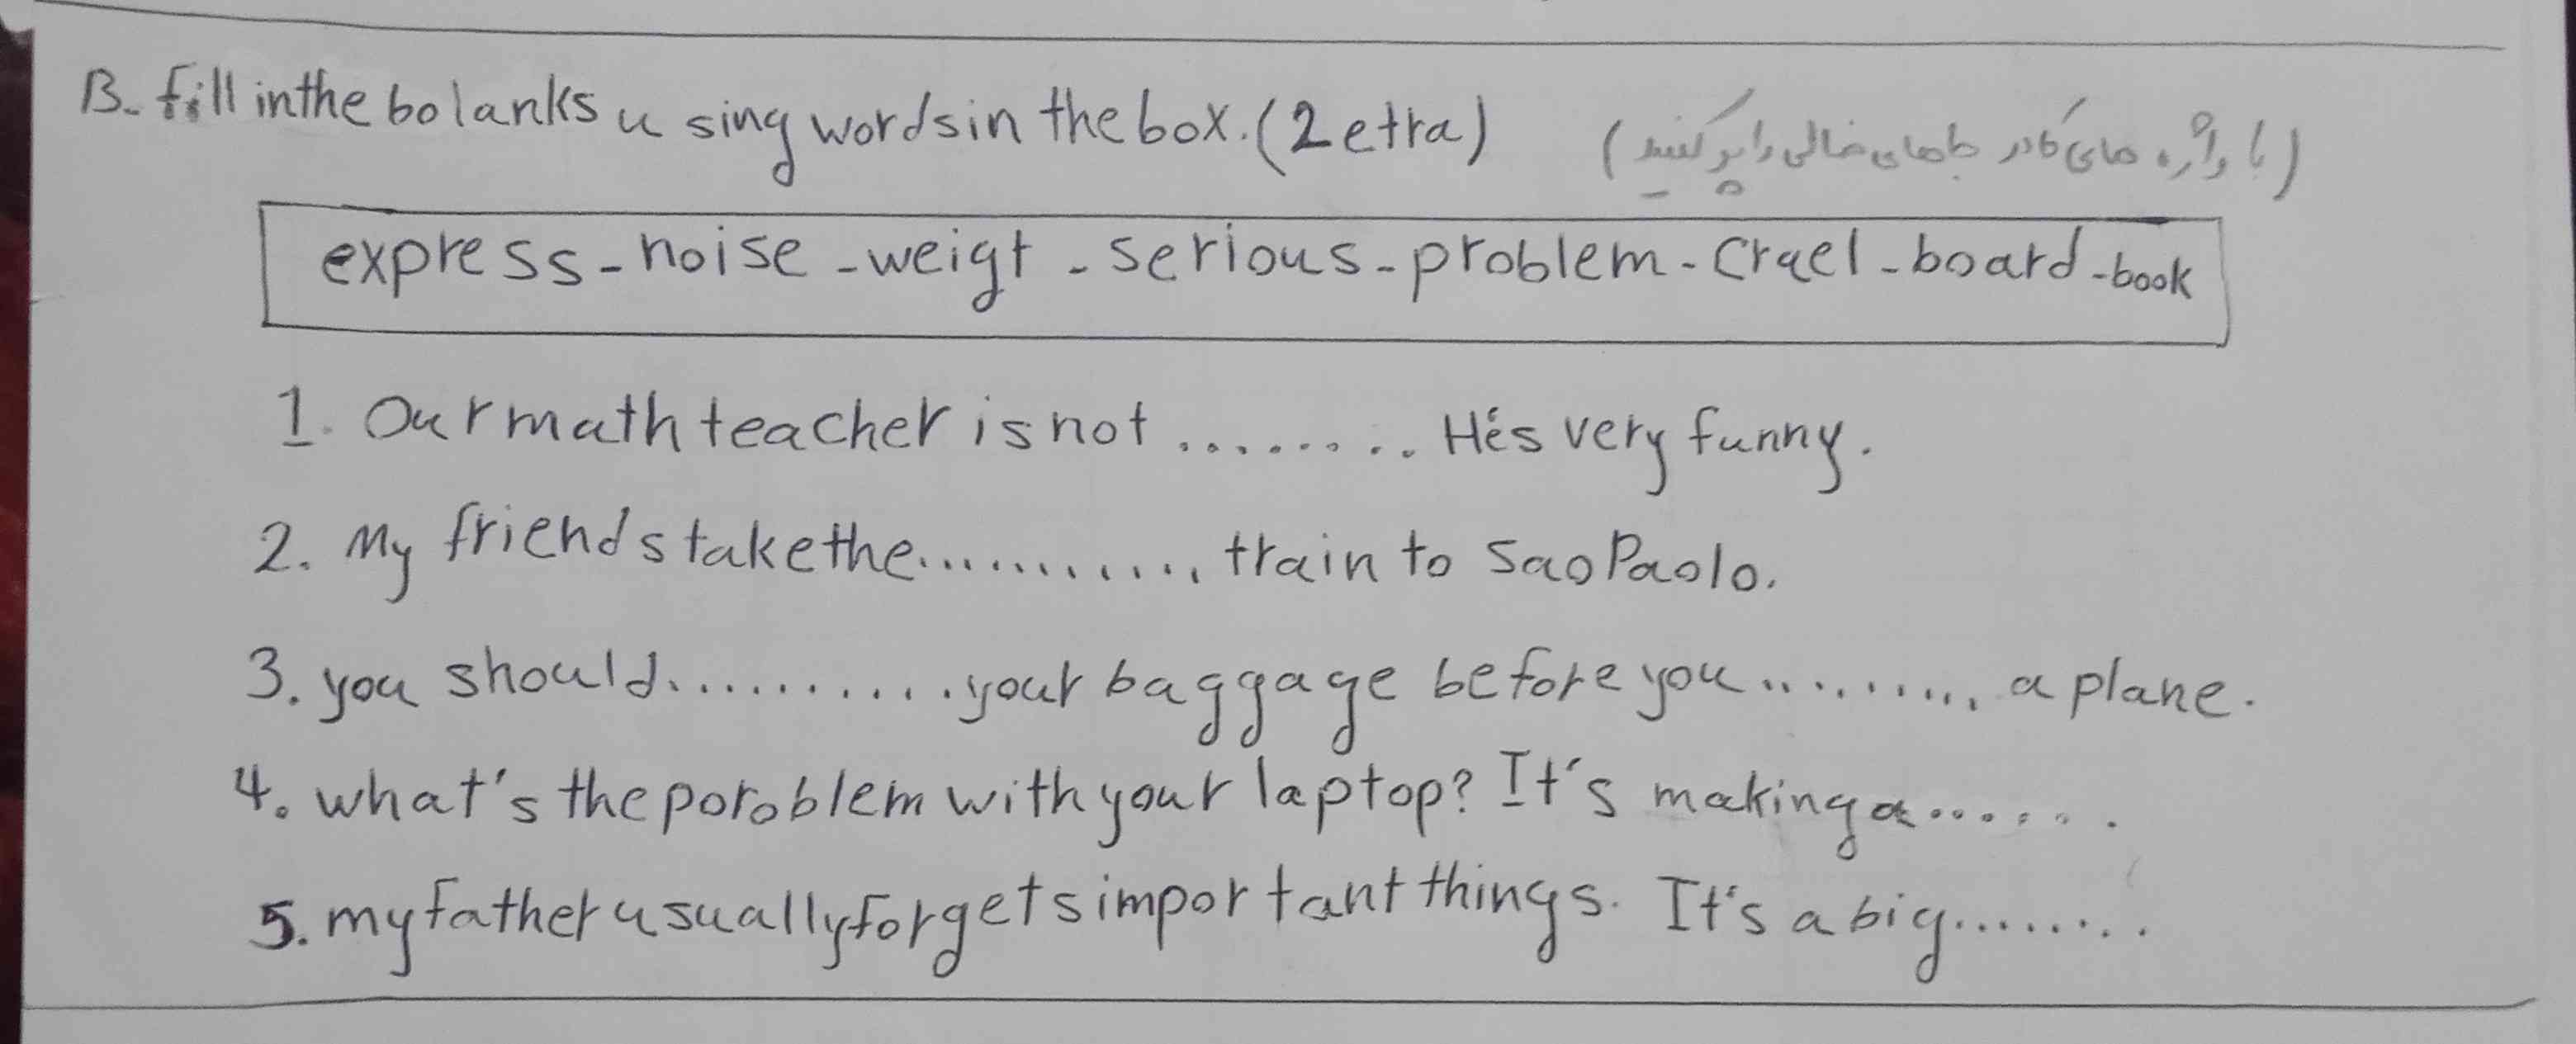 B. fill in the bolanks using words in the box. (2 etra) (با واژه های کادر جاهای خالی را پر کنید)
express - noise - weigt - serious - problem - Cruel - board - book
1. Our math teacher is not ......... He's very funny.
2. My friends take the ............ train to Sao Paolo.
3. you should ............ your baggage before you .......... a plane.
4. what's the poroblem with your laptop? It's making a .......
5. my father usually forgets important things. It's a big .........